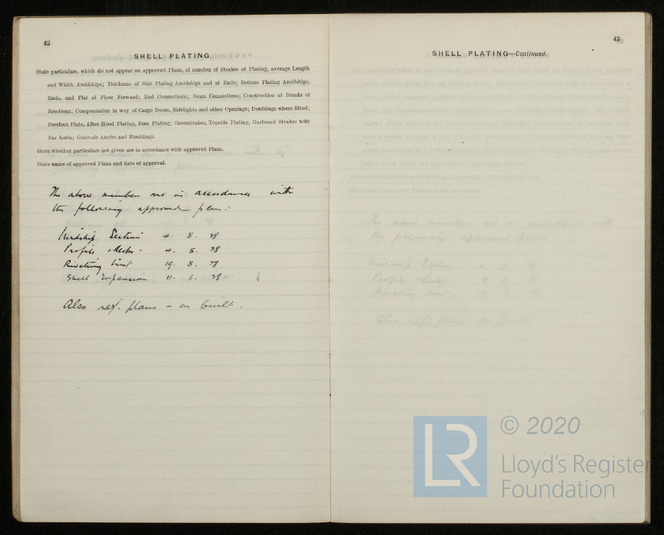 42
SHELL PLATING.
State particulars, which do not appear on approved Plans, of number of Strakes of Plating, average Length
and Width Amidships; Thickness of Side Plating Amidships and at Ends; Bottom Plating Amidships,
Ends, and Flat of Floor Forward; End Connections; Seam Connections; Construction at Breaks of
Erections; Compensation in way of Cargo Doors, Sidelights and other Openings; Doublings where fitted;
Forefoot Plate, After Hood Plating, Boss Plating; Sheerstrakes, Topside Plating, Garboard Strakes with
Bar Keels; Gunwale Angles and Mouldings.
State whether particulars not given are in accordance with approved Plans.
State name of approved Plans and date of approval.
The above member are in accordance with
the following approved plans:
Midship Section 4. 5. 28
Profile & Decks 4. 5. 28
Riveting List 19. 5. 28
Shell Expansion 11. 6. 28.
Also ref. plans - as built.
43
SHELL PLATING—Continued.
LR
© 2020
Lloyd's Register
Foundation